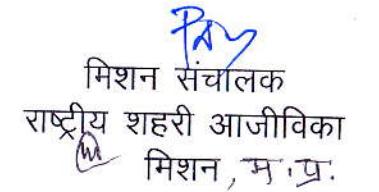 मिशन संचालक
राष्ट्रीय शहरी आजीविका
मिशन, म.प्र.